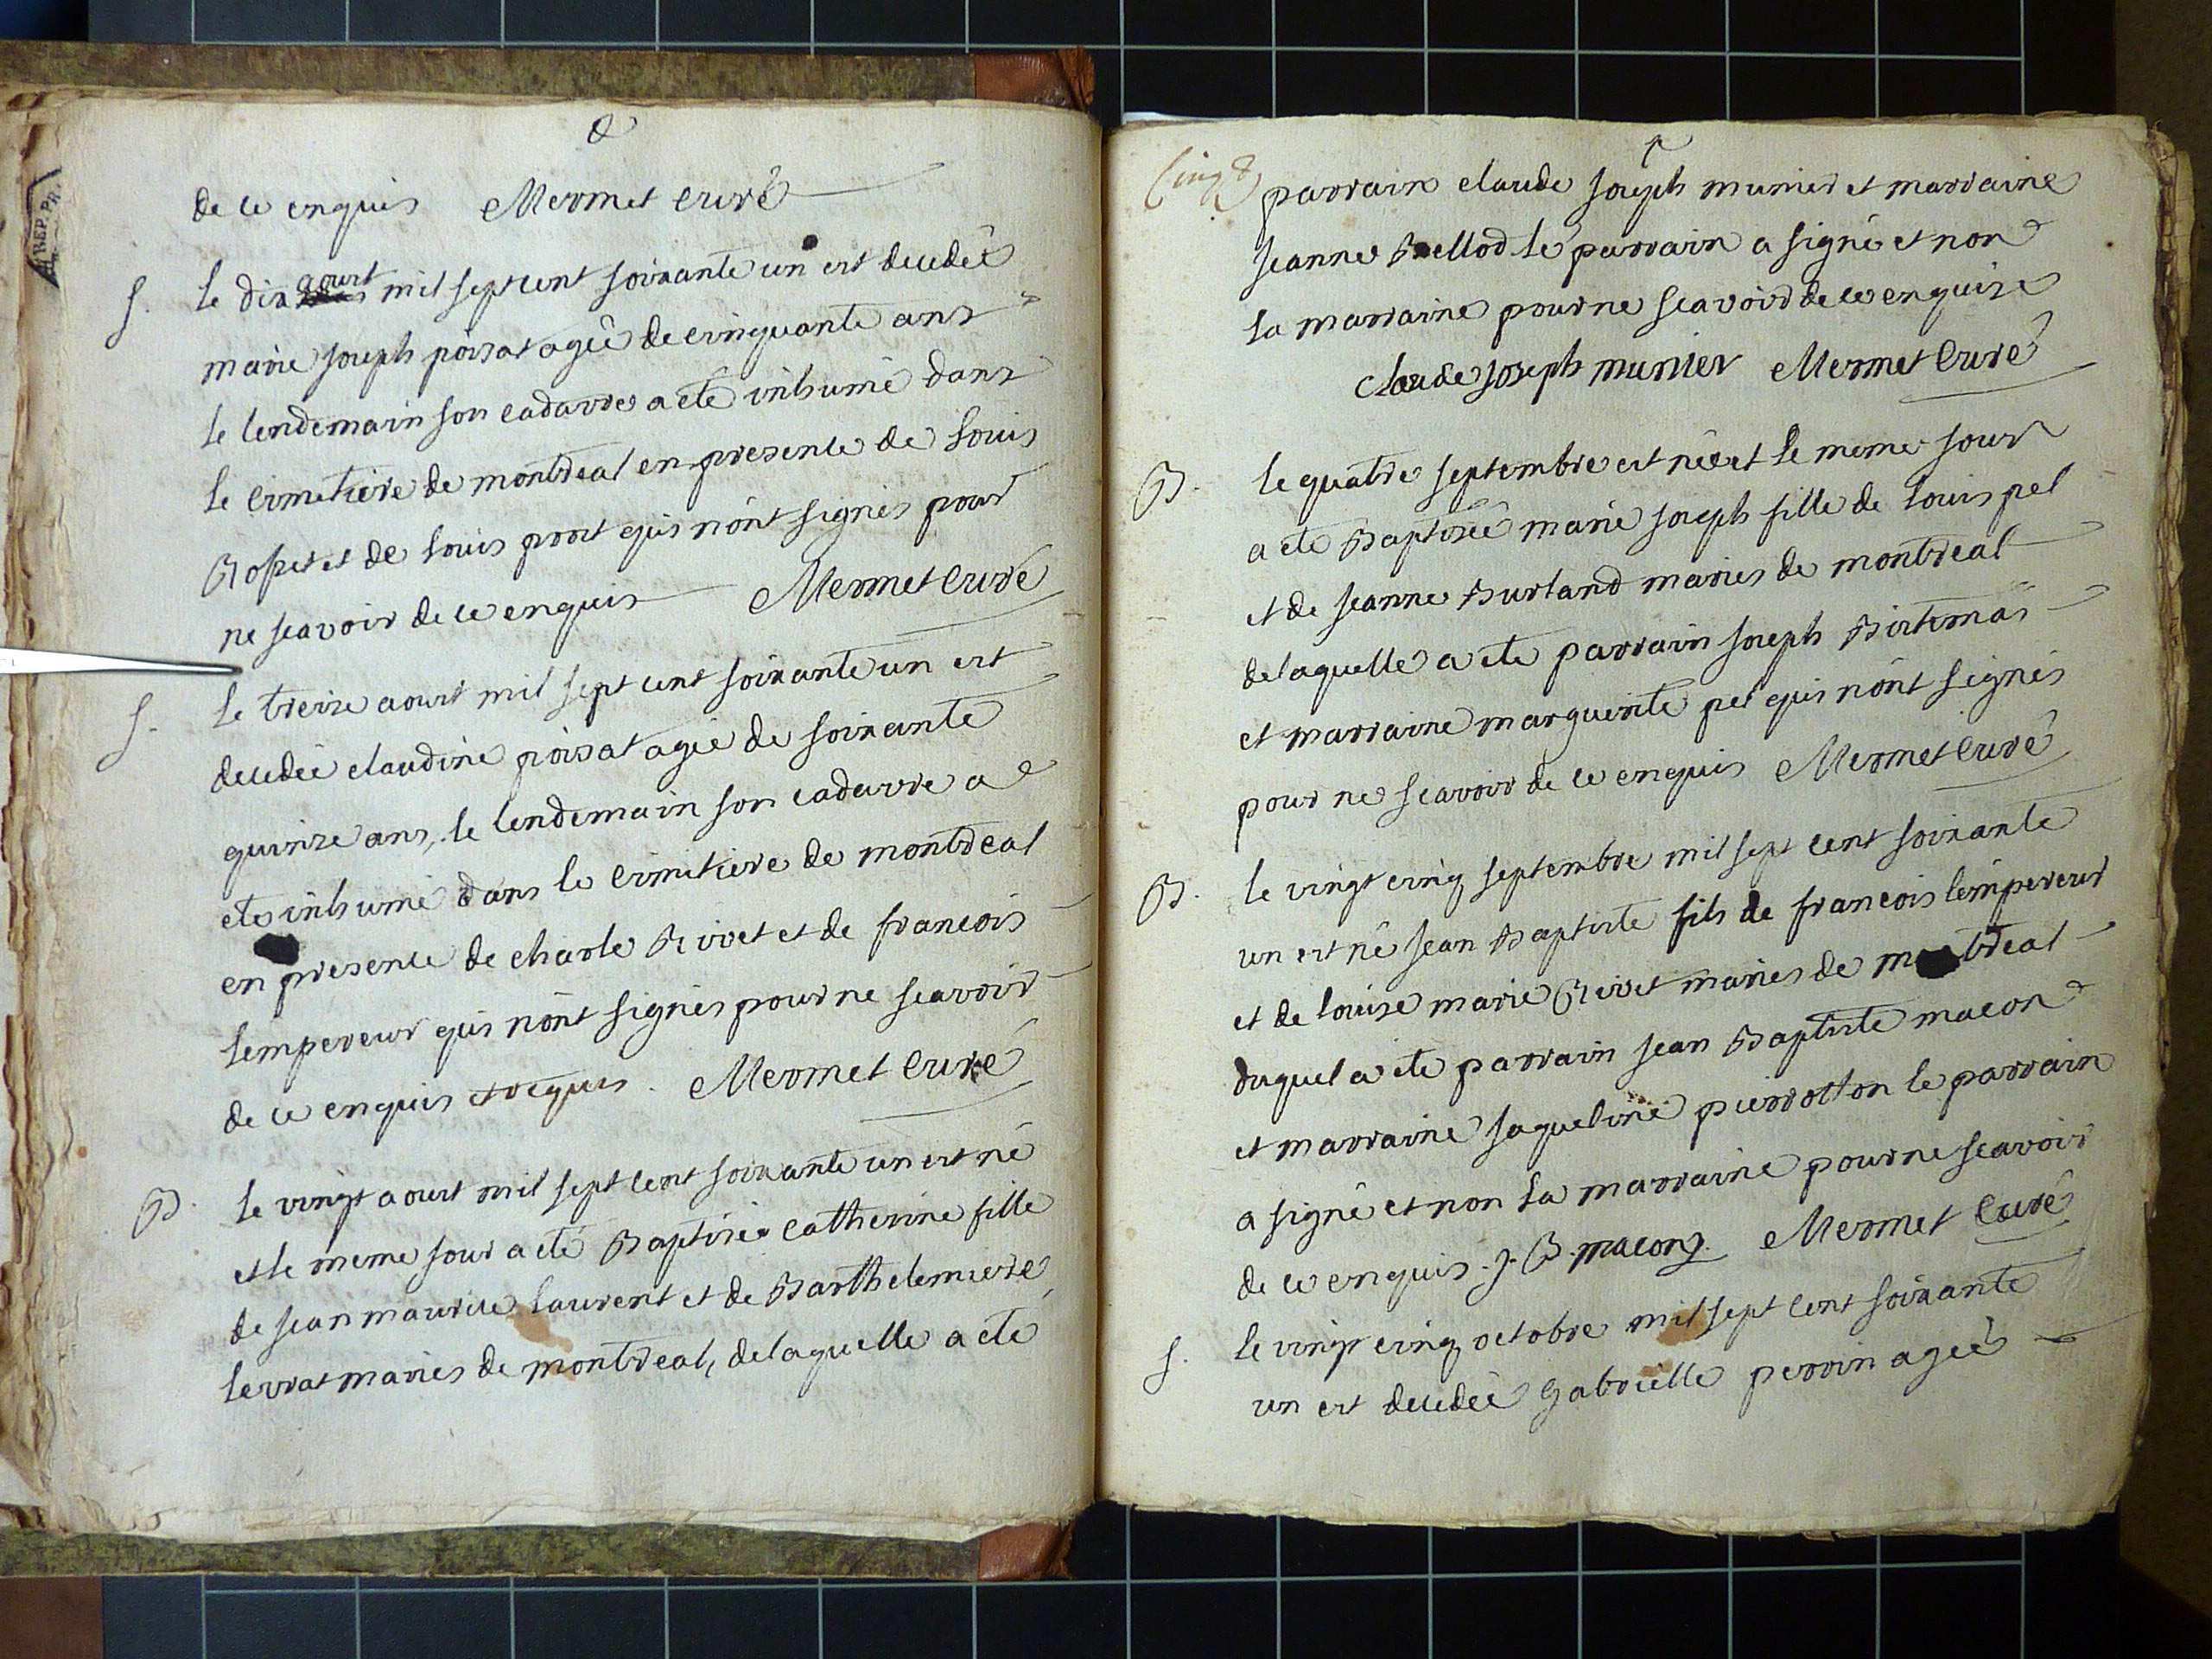 de ce enquis Mermet curé
S. le dix aoust mil sept cent soixante un est decedeé
marie joseph poisat ageê de cinquante ans
le lendemain son cadavre a eté inhumé dans
le cimetiere de montreal en presence de Louis
Rosset et de Louis prost qui n'ont signés pour
ne scavoir de ce enquis Mermet curé
S. le treize aoust mil sept cent soixante un est
decedeé claudine poisat ageé de soixante
quinze ans, le lendemain son cadavre a
eté inhumé dans le cimetiere de montreal
en presence de charle Rivet et de francois
Lempereur qui n'ont signés pour ne scavoir
de ce enquis et requis. Mermet curé
B. le vingt aoust mil sept cent soixante un est né
et le meme jour a eté Baptisée catherine fille
de jean maurice laurent et de Barthelemiere
servat mariés de montreal, de laquelle a eté
REP. PR.
Cinq parrain claude joseph munier et marraine
jeanne Bellod le parrain a signé et non
la marraine pour ne scavoir de ce enquise
claude joseph munier Mermet Curé
B. le quatre septembre est neé et le meme jour
a eté Baptiseé marie joseph fille de louis pel
et de jeanne Burland mariés de montreal
de laquelle a eté parrain joseph
et marraine marguerite pel qui n'ont signés
pour ne scavoir de ce enquis Mermet curé
B. le vingt cinq septembre mil sept cent soixante
un est né jean Baptiste fils de francois lempereur
et de louise marie Rivet mariés de montreal
duquel a eté parrain jean Baptiste macon
et marraine jaqueline pierrotton le parrain
a signé et non la marraine pour ne scavoir
de ce enquis. J. B. macon Mermet Curé
S. le vingt cinq octobre mil sept cent soixante
un est decedeé gabrielle perrin ageé